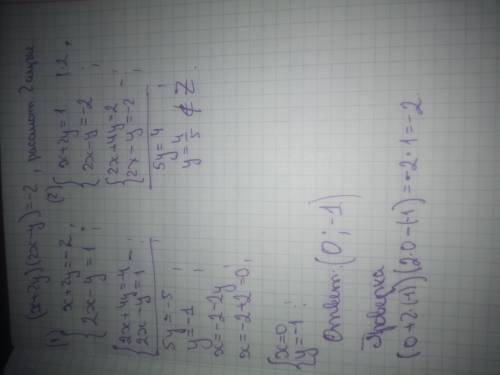 (x+2y)(2x-y)=-2 , рассмот. 2 случая
(1) { x+2y=-2 ,
2x-y=1 ;
{ 2x+4y=-4 -
2x-y=1 ;
5y=-5 ;
y=-1 ;
x=-2-2y ;
x=-2+2=0 ;
{ x=0
y=-1 ;
(2) { x+2y=1 |·2 ,
2x-y=-2 ;
{ 2x+4y=2 -
2x-y=-2 ;
5y=4 ;
y=4/5 ∉ Z .
Ответ: (0 ; -1)
Проверка
(0+2·(-1))(2·0-(-1))=-2·1=-2.